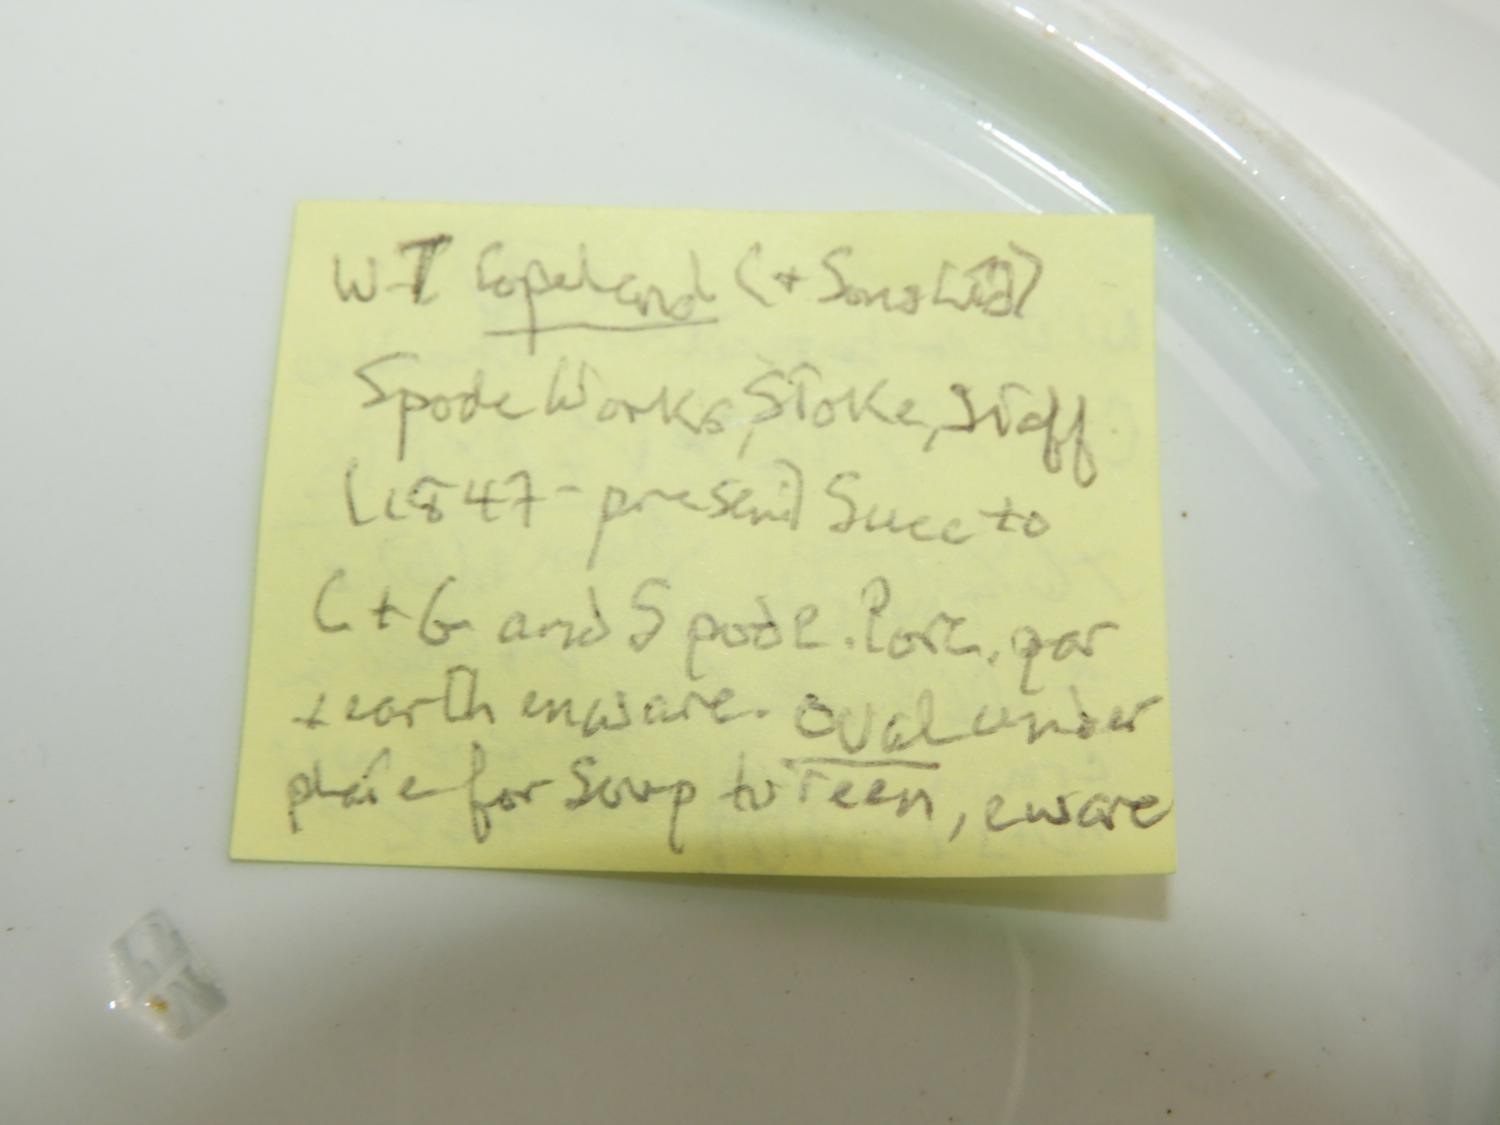 WT Copeland (+ Sons Ltd)
Spode Works, Stoke, Staff.
(c1847-present) Succ to
C+G and Spode. Porc, par
+ earthenware. Oval under
plate for Soup tureen, eware